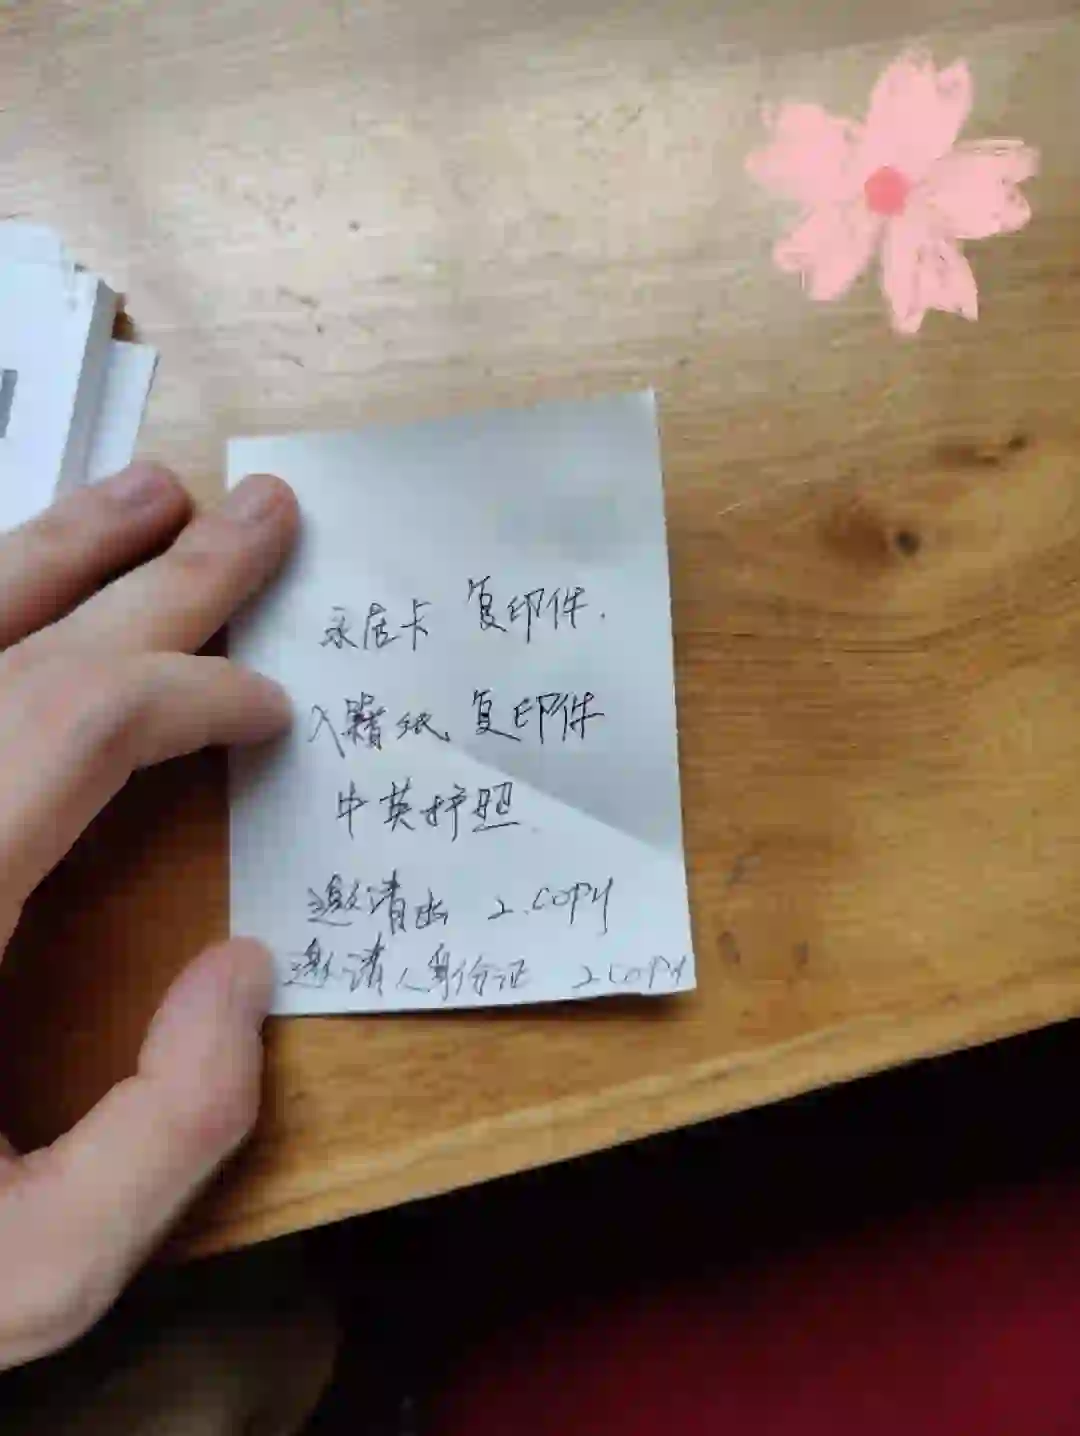 永居卡 复印件.
入籍纸 复印件
中英护照.
邀请函 2.copy
邀请人身份证 2 copy